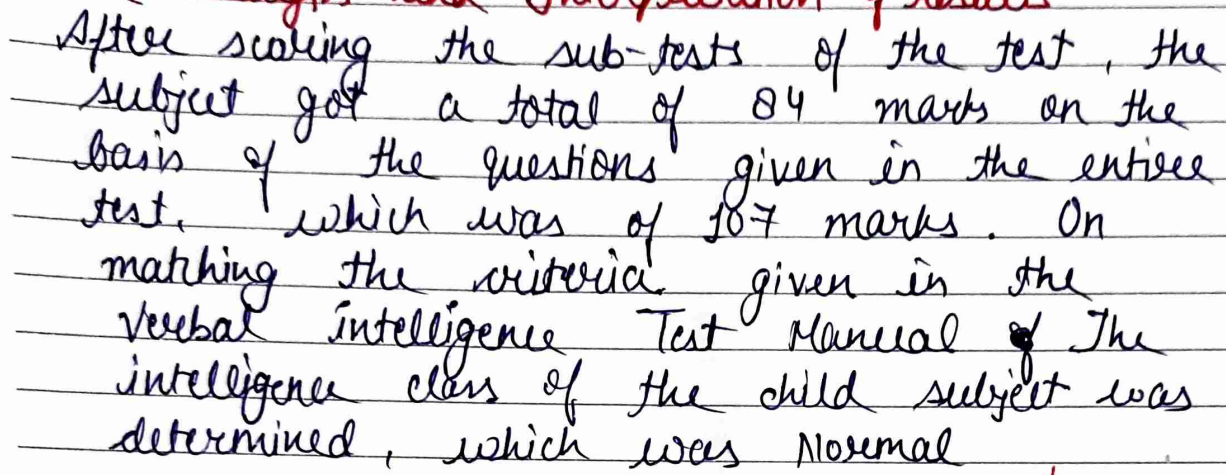 and Interpretation of results
After scoring the sub-tests of the test, the
subject got a total of 84 marks on the
basis of the questions given in the entire
test, which was of 107 marks. On
matching the criteria given in the
Verbal intelligence Test Manual The
intelligence class of the child subject was
determined, which was Normal